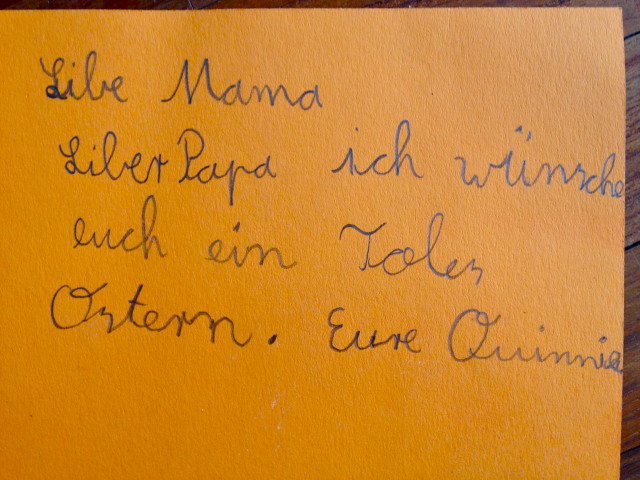 Libe Mama
Liber Papa ich wünsche
euch ein Toles
Ostern. Eure Quinnia